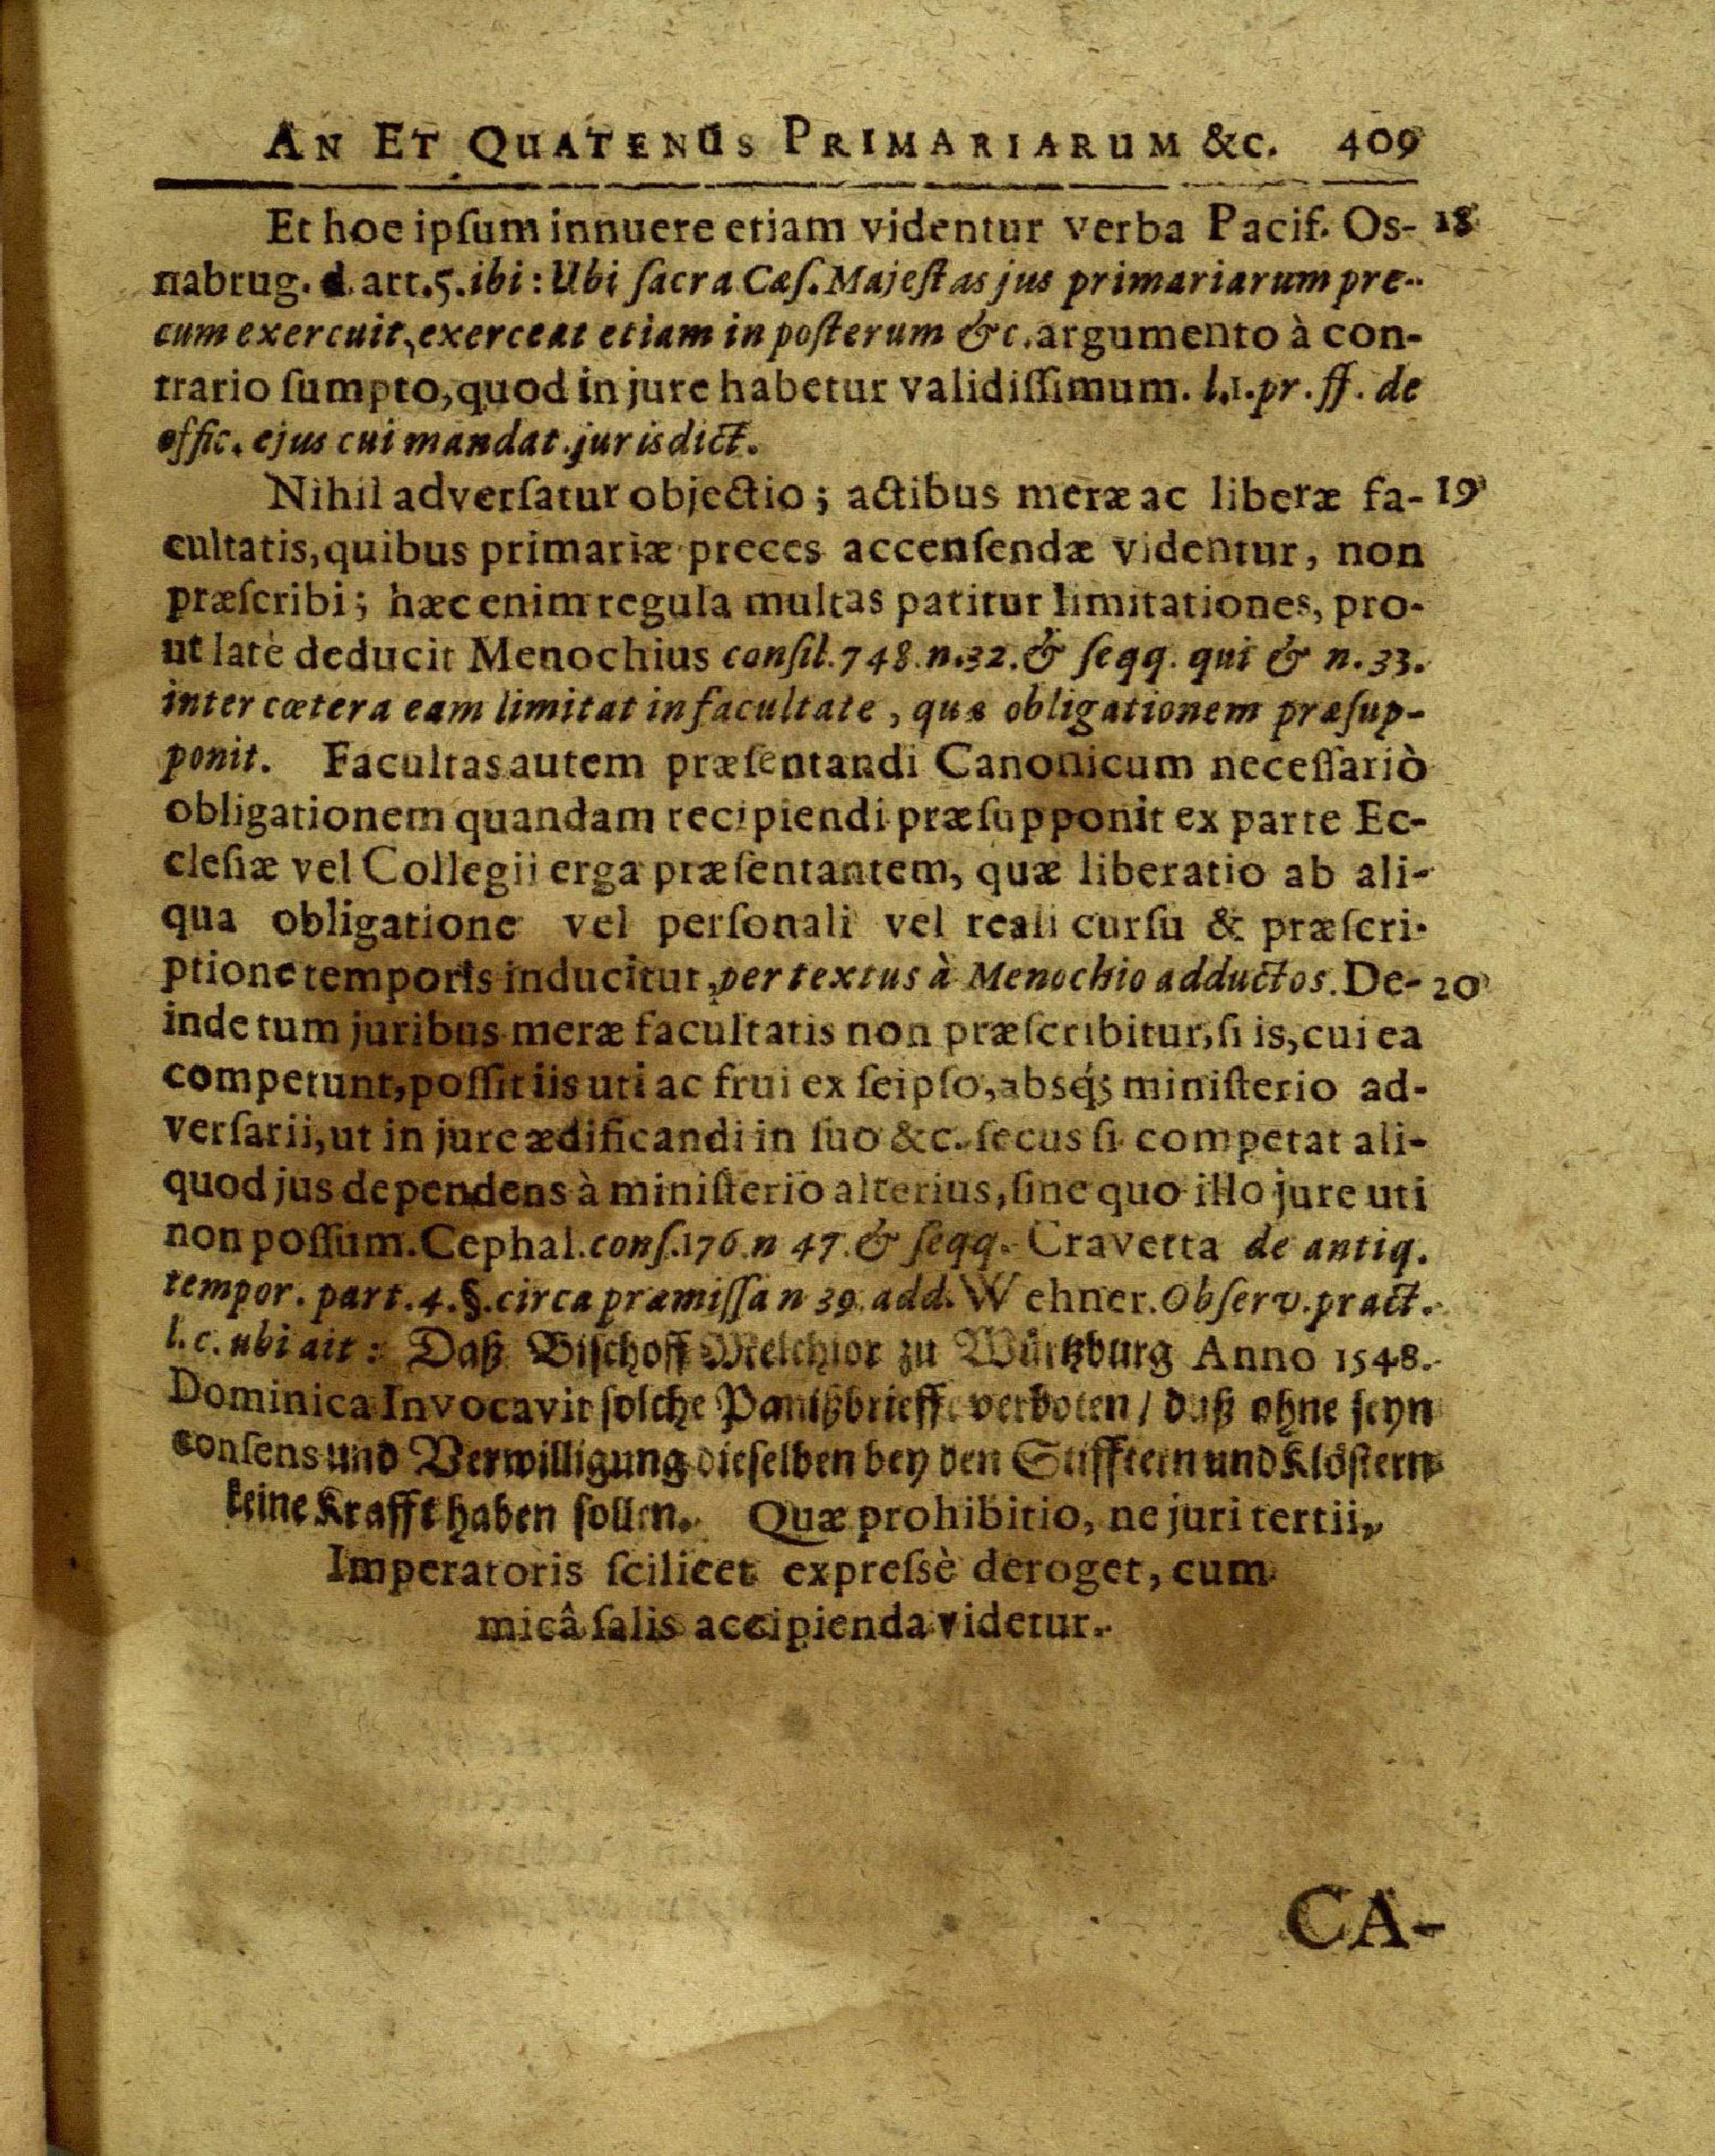 AN ET QUATENUS PRIMARIARUM &c. 409
Et hoc ipſum innuere etiam videntur verba Pacif. Os- 18
nabrug. d. art. 5. ibi: Ubi ſacra Cæſ. Majeſtas jus primariarum pre-
cum exercuit, exerceat etiam in poſterum &c. argumento à con-
trario ſumpto, quod in jure habetur validiſſimum. l. 1. pr. ff. de
offic. ejus cui mandat. jurisdict.
Nihil adverſatur objectio; actibus meræ ac liberæ fa- 19
cultatis, quibus primariæ preces accenſendæ videntur, non
præſcribi; hæc enim regula multas patitur limitationes, pro-
ut latè deducit Menochius conſil. 748. n. 32. & ſeqq. qui & n. 33.
inter cœtera eam limitat in facultate, quæ obligationem præſup-
ponit. Facultas autem præſentandi Canonicum neceſſariò
obligationem quandam recipiendi præſupponit ex parte Ec-
cleſiæ vel Collegii erga præſentantem, quæ liberatio ab ali-
qua obligatione vel perſonali vel reali curſu & præſcri-
ptione temporis inducitur, per textus à Menochio adductos. De- 20
inde tum juribus meræ facultatis non præſcribitur, ſi is, cui ea
competunt, poſſit iis uti ac frui ex ſeipſo, absq́; miniſterio ad-
verſarii, ut in jure ædificandi in ſuo &c. ſecus ſi competat ali-
quod jus dependens à miniſterio alterius, ſine quo illo jure uti
non poſſum. Cephal. conſ. 176. n 47. & ſeqq. Cravetta de antiq.
tempor. part. 4. §. circa præmiſſa n 39. add. Wehner. Obſerv. pract.
l. c. ubi ait: Daß Biſchoff Melchior zu Würtzburg Anno 1548.
Dominica Invocavit ſolche Panißbrieffe verboten / daß ohne ſeyn
conſens und Verwilligung dieſelben bey den Stifftern und Klöſtern
keine Krafft haben ſollen. Quæ prohibitio, ne juri tertii,
Imperatoris ſcilicet expreſsè deroget, cum
micâ ſalis accipienda videtur.
CA-